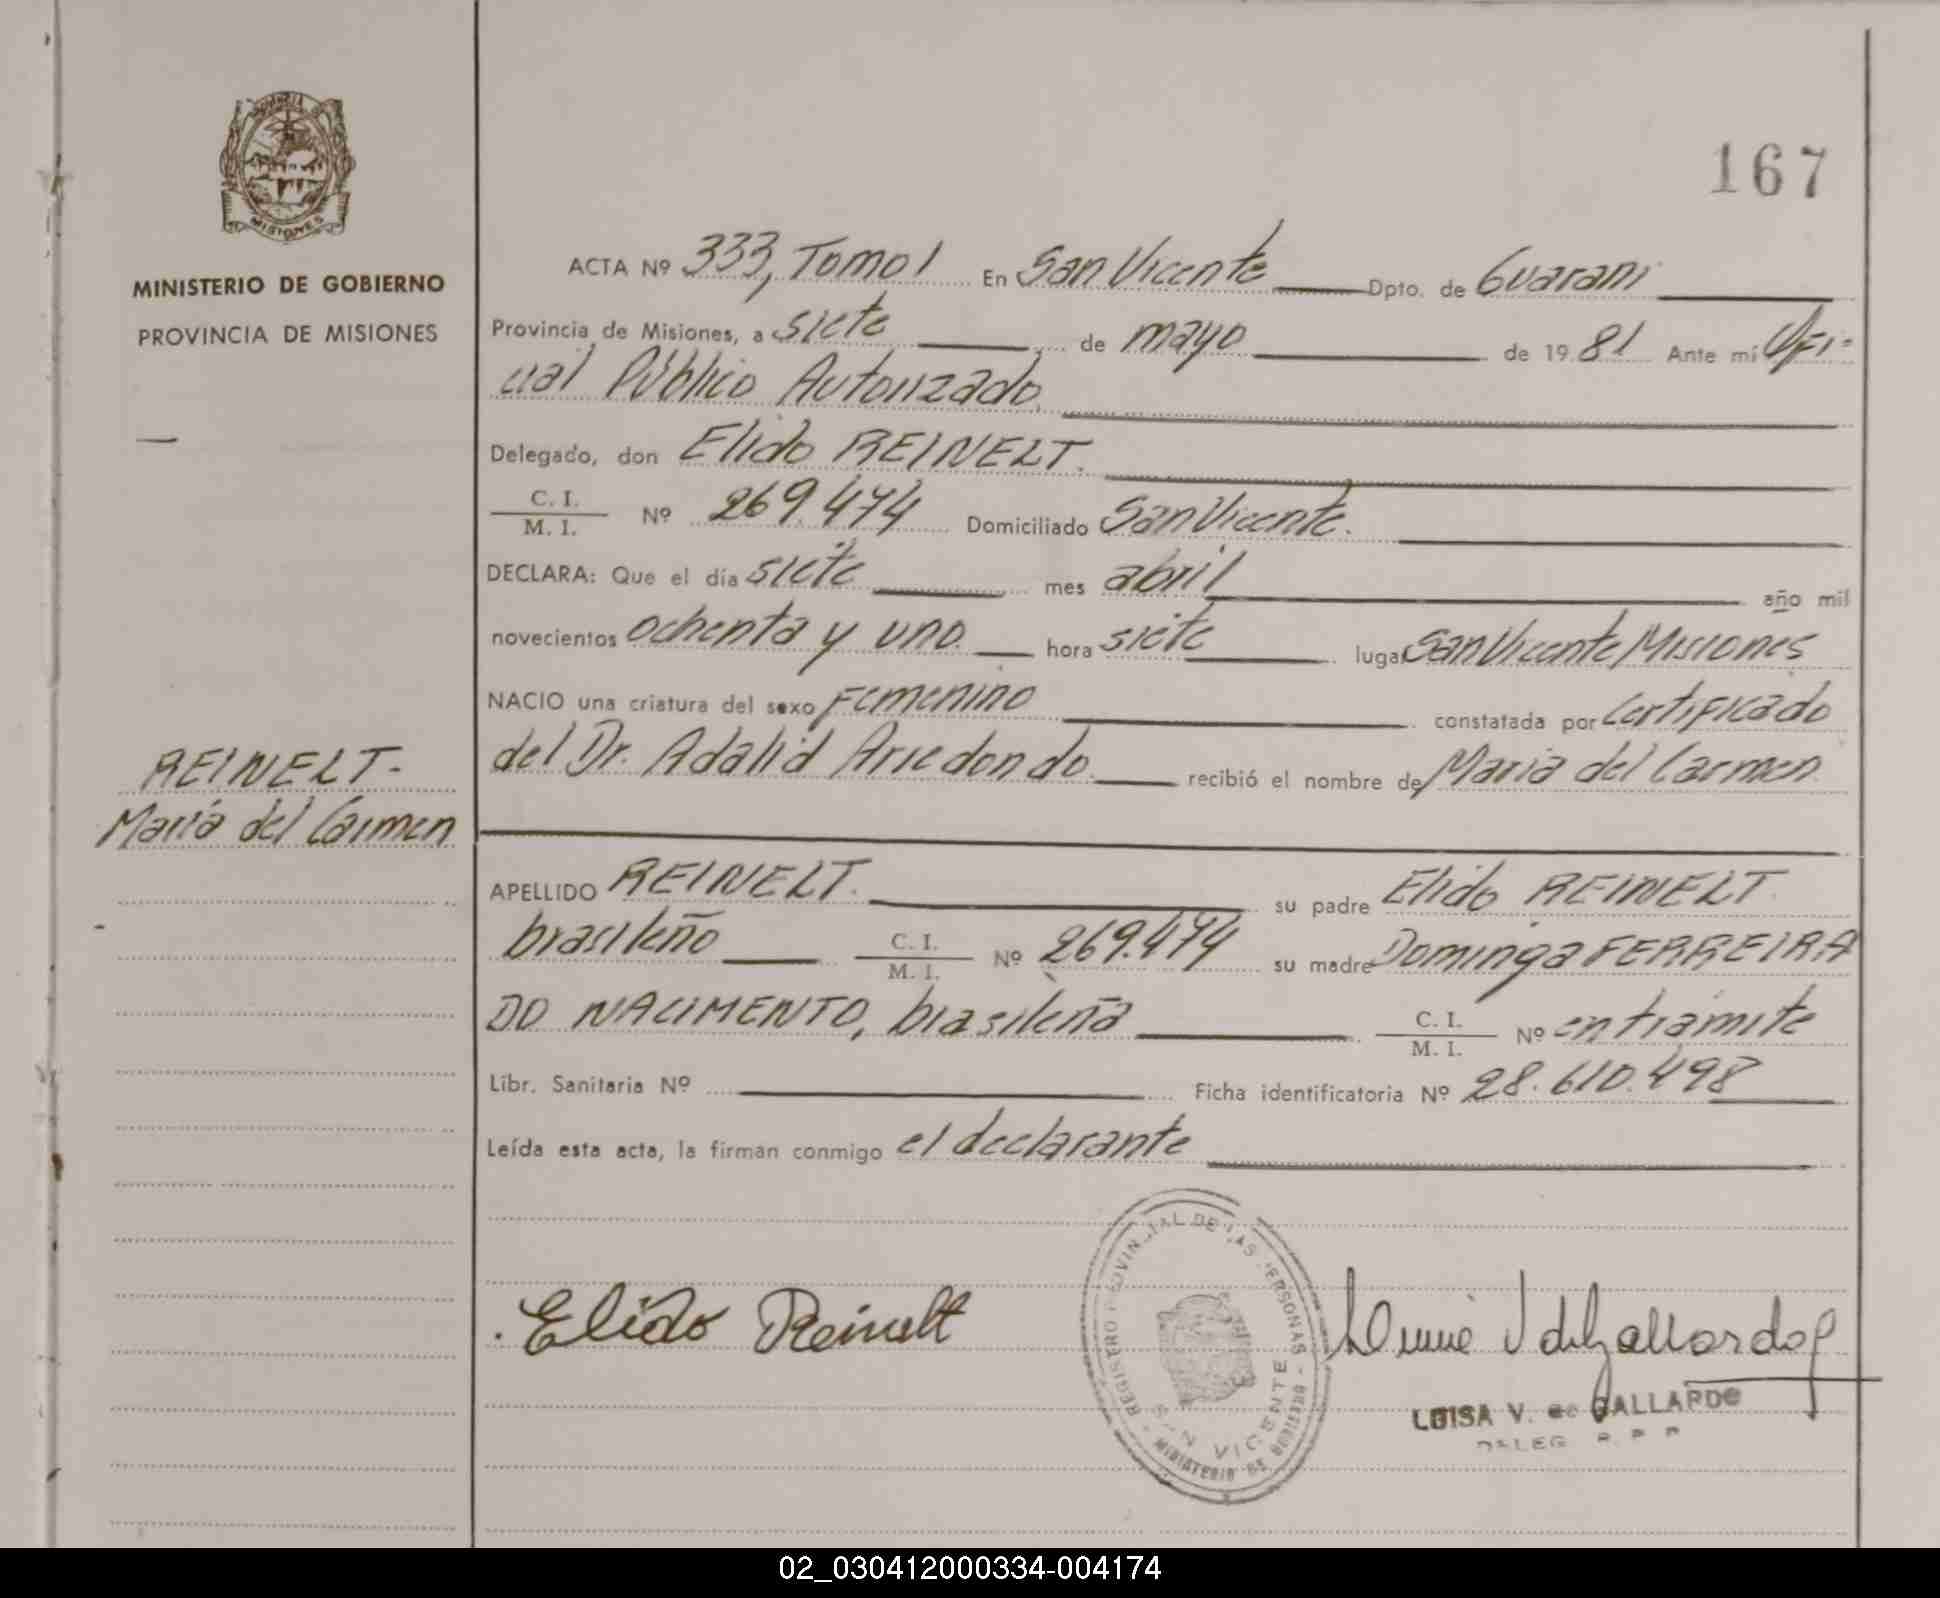 PROVINCIA DE
MISIONES
MINISTERIO DE GOBIERNO
PROVINCIA DE MISIONES
167
ACTA Nº 333, Tomo I En San Vicente Dpto. de Guarani
Provincia de Misiones, a siete de mayo de 1981 Ante mí Ofi-
cial Público Autorizado
Delegado, don Elido REINELT.
C. I. / M. I. Nº 269.474 Domiciliado San Vicente.
DECLARA: Que el día siete mes abril año mil
novecientos ochenta y uno. hora siete lugar San Vicente Misiones
NACIO una criatura del sexo Femenino constatada por Certificado
del Dr. Adalid Arredondo. recibió el nombre de Maria del Carmen
REINELT-
María del Carmen
APELLIDO REINELT. su padre Elido REINELT
brasileño C. I. / M. I. Nº 269.474 su madre Dominga FERREIRA
DO NACIMENTO, brasileña C. I. / M. I. Nº en trámite
Libr. Sanitaria Nº Ficha identificatoria Nº 28.610.498
Leída esta acta, la firman conmigo el declarante
Elido Reinelt
REGISTRO PROVINCIAL DE LAS PERSONAS - MINISTERIO DE GOBIERNO
SAN VICENTE
LUISA V. de GALLARDO
DELEG. R. P. P.
02_030412000334-004174